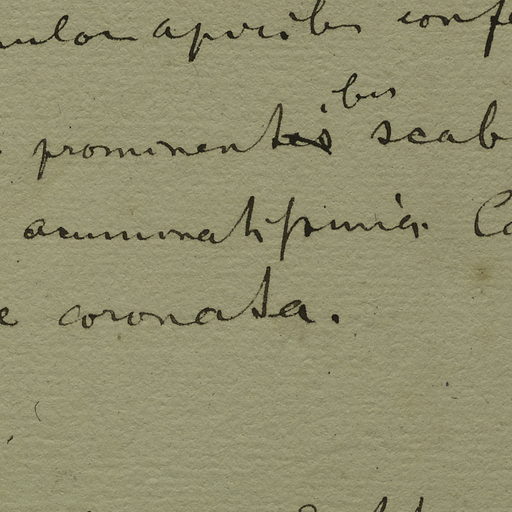 apicibus conf
prominentibus scab
acuminatissimis. Co
e coronata.